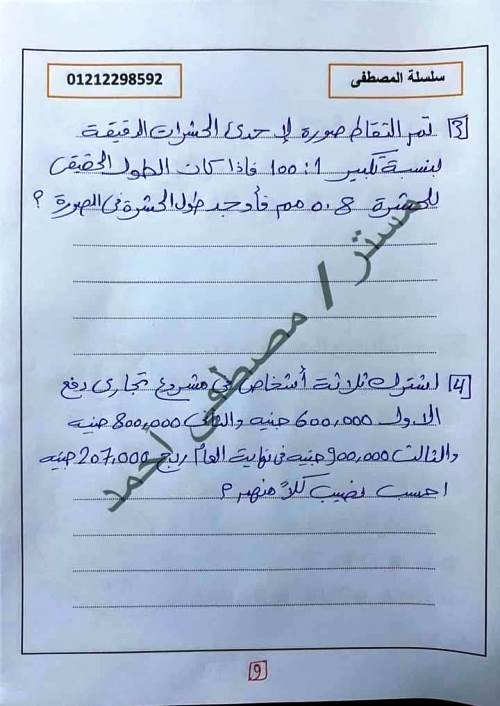 سلسلة المصطفى
01212298592
[3] تم التقاط صورة لإحدى الحشرات الدقيقة
بنسبة تكبير 1 : 100 فإذا كان الطول الحقيقى
للحشرة 0.8 مم فأوجد طول الحشرة فى الصورة ؟
[4] اشترك ثلاثة أشخاص فى مشروع تجارى دفع
الأول 600,000 جنيه والثانى 800,000 جنيه
والثالث 900,000 جنيه فى نهاية العام ربح 207,000 جنيه
احسب نصيب كلاً منهم ؟
مستر / مصطفى أحمد
9